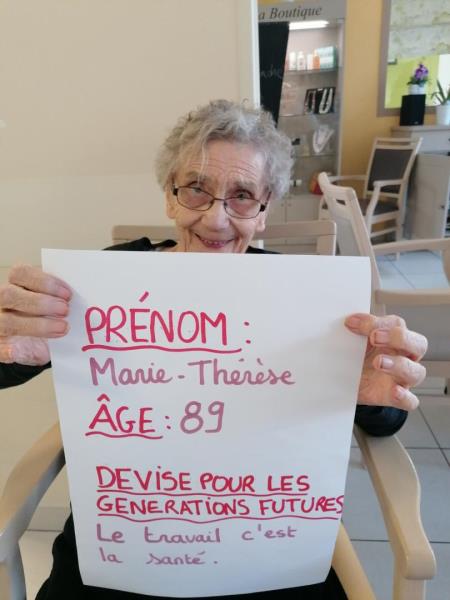 la Boutique
PRÉNOM :
Marie-Thérèse
ÂGE : 89
DEVISE POUR LES
GENERATIONS FUTURES
Le travail c'est
la santé.